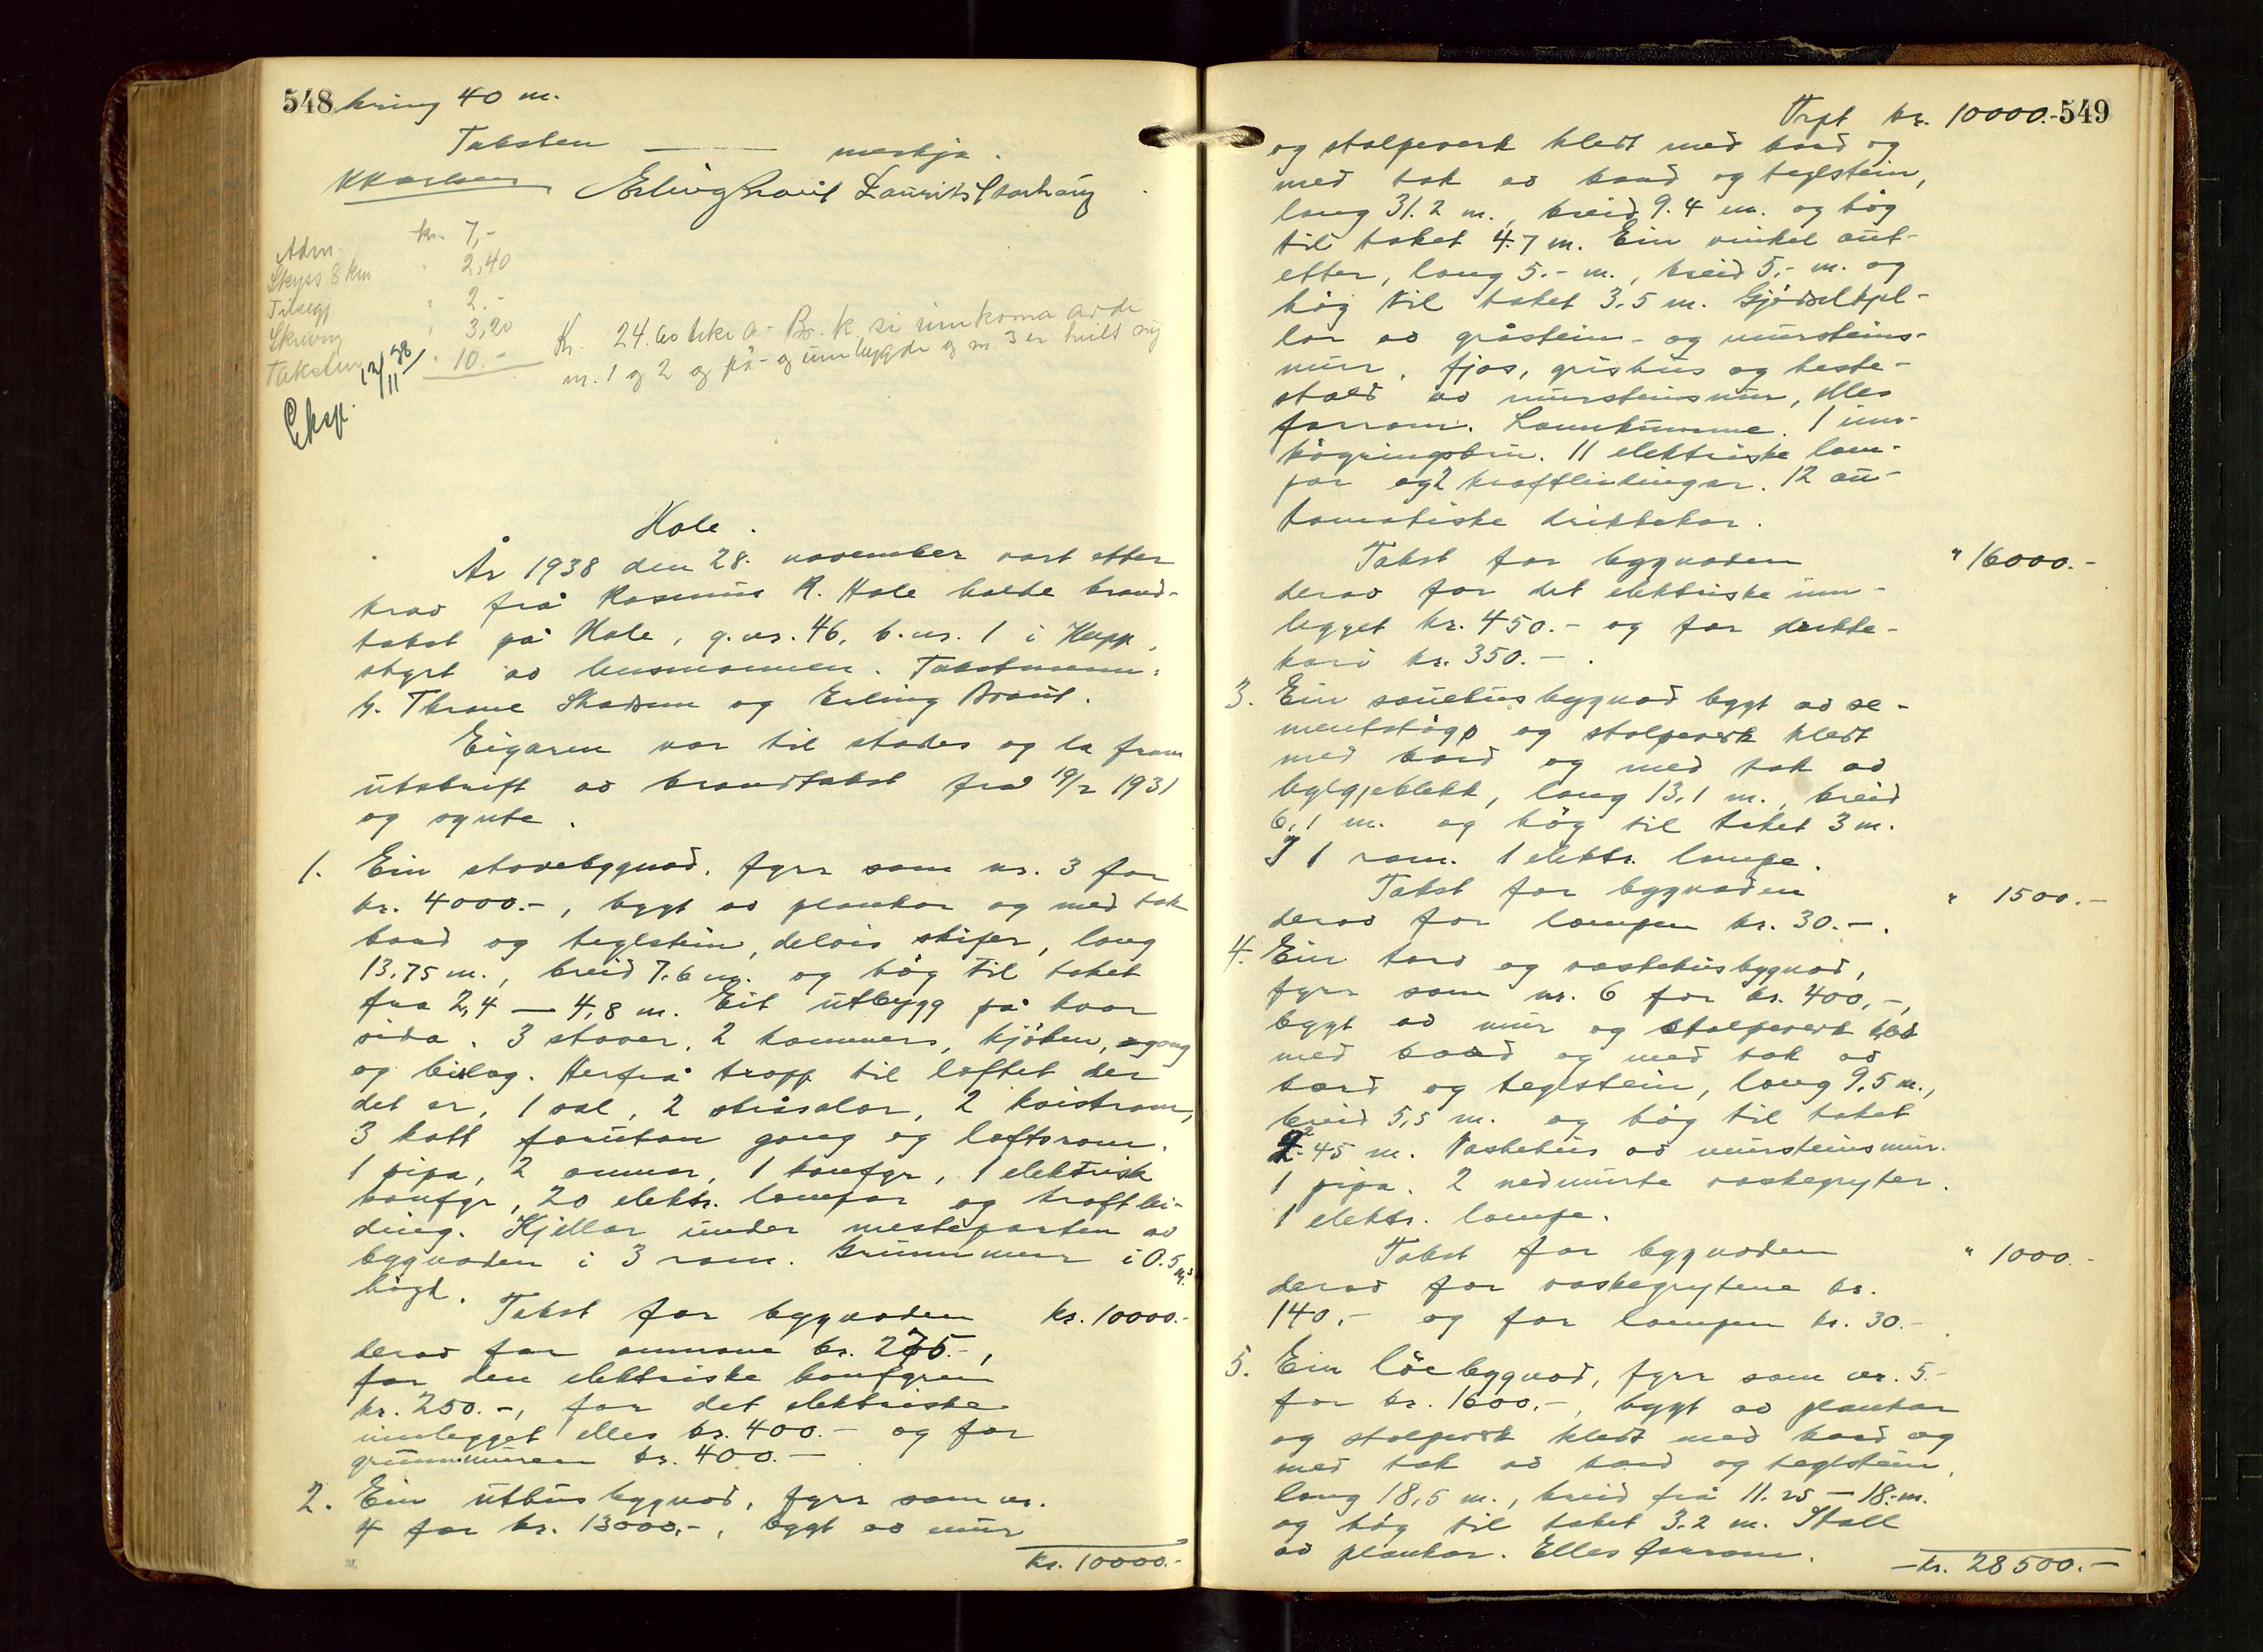 548 kring 40 m.
Taksten — merkja.
Erling Laurits
Adm. kr. 7,-
Skyss 8 km " 2,40
Tilsegj " 2.-
Skriving " 3,20
Taksten " 10.-
Eksp. 12/11 38
Kr. 24.60 Br. k.
nr. 1 og 2 og på- og umbygde og nr. 3 er heilt ny
Hole.
År 1938 den 28. november vart etter
krav frå Rasmus R. Hole halde brand-
takst på Hole, g.nr. 46, b.nr. 1 i Hepp,
styrt av lensmannen. Takstmenn:
Thrane Skadsem og Erling Braut.
Eigaren var til stades og la fram
utskrift av brandtakst frå 19/2 1931
og synte.
1. Ein stovebygnad, fyrr som nr. 3 for
kr. 4000.-, bygt av plankar og med tak
bord og teglstein, delvis skifer, lang
13,75 m., breid 7.6 m. og høg til taket
fra 2,4 — 4,8 m. Eit utbygg på kvar
sida. 3 stover, 2 kammers, kjöken, gang
og bislag. Herfrå trapp til loftet der
det er, 1 sal, 2 stråsalar, 2 kvistrom,
3 kott forutan gang og loftsrom.
1 pipa, 2 omnar, 1 komfyr, 1 elektrisk
komfyr, 20 elektr. lampor og kraftlei-
ding. Kjellar under mesteparten av
bygnaden i 3 rom. Grunnmur i 0.5 m.s
högd.
Takst for bygnaden kr. 10000.-
derav for omnane kr. 275.-,
for den elektriske komfyren
kr. 250.-, for det elektriske
innlegget elles kr. 400.- og for
grunnmuren kr. 400.-
2. Ein uthusbygnad, fyrr som nr.
4 for kr. 13000,-, bygt av mur
kr. 10000.-
Trpt kr. 10000.- 549
og stolpeverk kledt med bord og
med tak av bord og teglstein,
lang 31.2 m., breid 9.4 m. og høg
til taket 4.7 m. Ein vinkel aust-
etter, lang 5.- m., breid 5,- m. og
høg til taket 3.5 m. Gjødselkjel-
lar av gråstein- og mursteins-
mur. Fjos, grishus og heste-
stall av mursteinsmur, elles
forrom. Lannkumme. 1 inn-
køyringsbru. 11 elektriske lam-
por og 2 kraftleidingar. 12 au-
tomatiske drikkekar.
Takst for bygnaden " 16000.-
derav for det elektriske inn-
legget kr. 450.- og for drikke-
kari kr. 350.-.
3. Ein sauehusbygnad bygt av se-
mentstøyp og stolpeverk kledt
med bord og med tak av
bylgjeblekk, lang 13,1 m., breid
6,1 m. og høg til taket 3 m.
I 1 rom. 1 elektr. lampe.
Takst for bygnaden " 1500.-
derav for lampen kr. 30.-.
4. Ein torv og vaskehusbygnad,
fyrr som nr. 6 for kr. 400,-,
bygt av mur og stolpeverk kled
med bord og med tak av
bord og teglstein, lang 9,5 m.,
breid 5,5 m. og høg til taket
2.45 m. Vaskehus av mursteinsmur.
1 pipa. 2 nedmurte vaskegryter.
1 elektr. lampe.
Takst for bygnaden " 1000.-
derav for vaskegrytene kr.
140,- og for lampen kr. 30.-.
5. Ein løebygnad, fyrr som nr. 5.-
for kr. 1600,-, bygt av plankar
og stolpeverk kledt med bord og
med tak av bord og teglstein,
lang 18,5 m., breid frå 11.25 – 18.- m.
og høg til taket 3.2 m. Stall
av plankar. Elles forrom.
kr. 28500.-